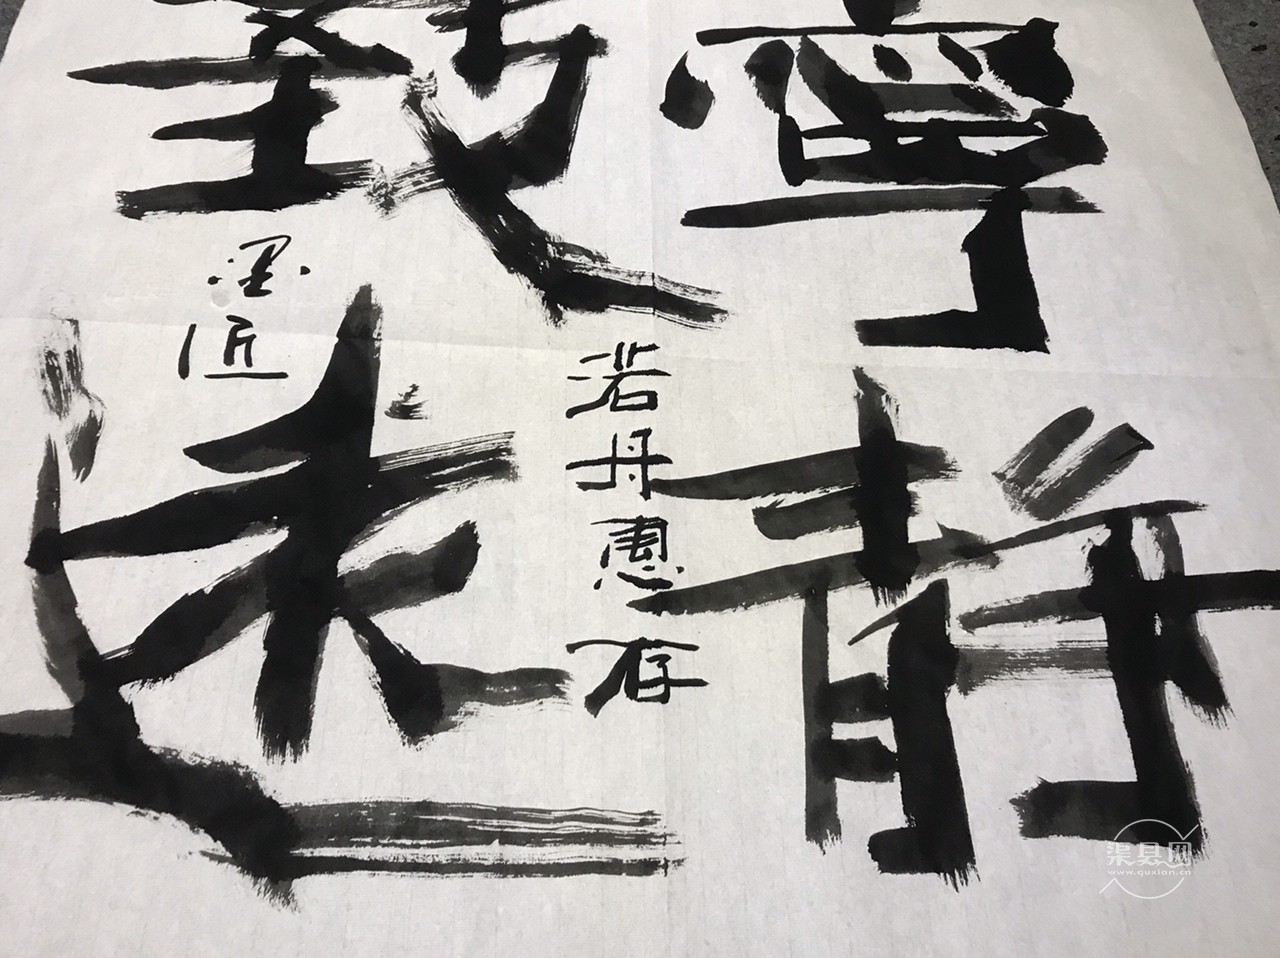 寧靜
致遠
渃丹惠存
墨匠
渠县网
www.quxian.cn